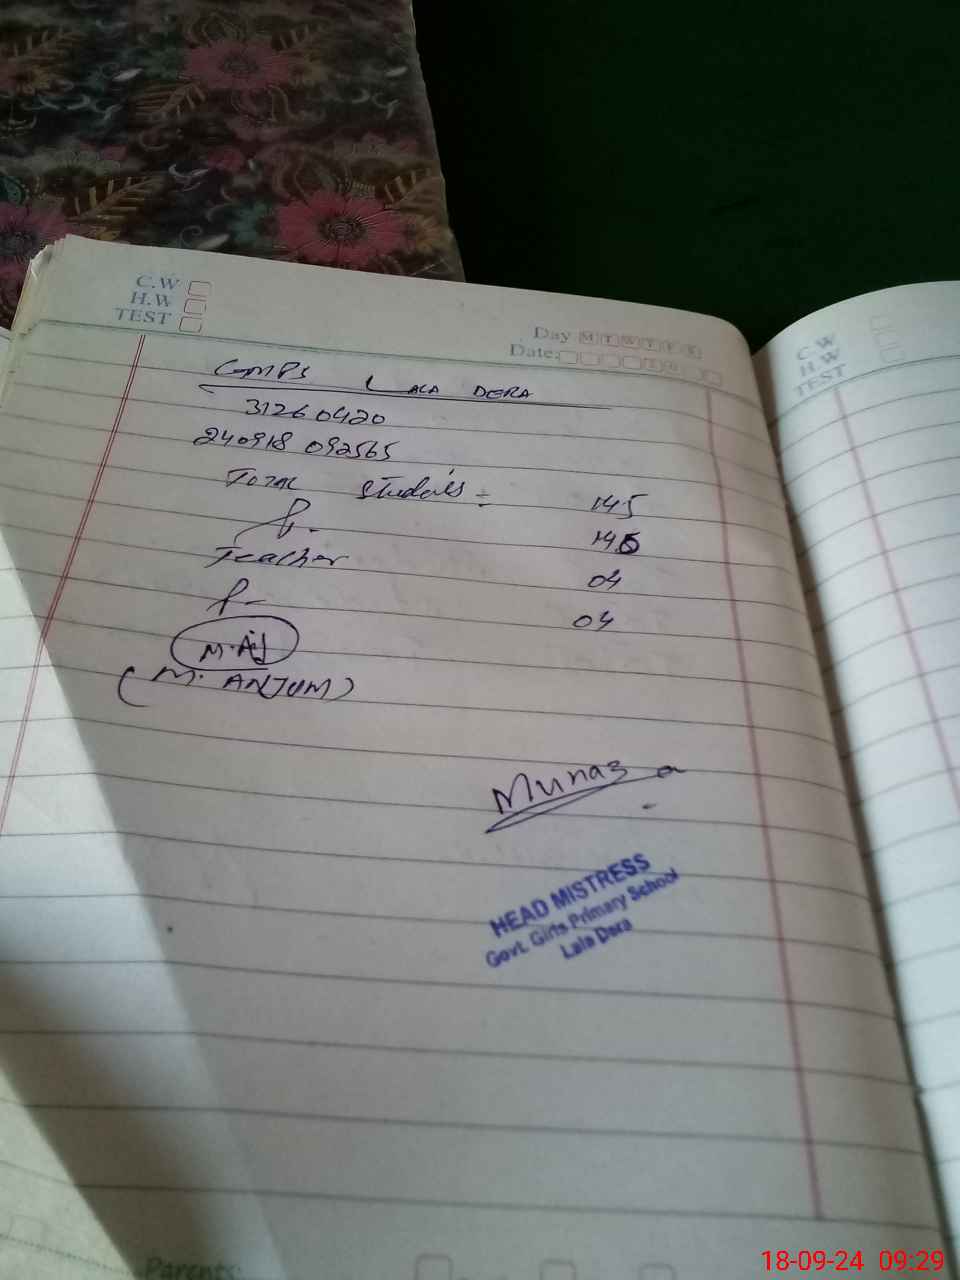 C.W
H.W
TEST
Day M T W T F S
Date:
GMPS LALA DERA
31260420
240918 092565
Total Students = 145
P. 145
Teacher 04
P- 04
(M. ANJUM)
Munaza
HEAD MISTRESS
Govt. Girls Primary School
Lala Dera
C.W
H.W
TEST
Parents
18-09-24 09:29